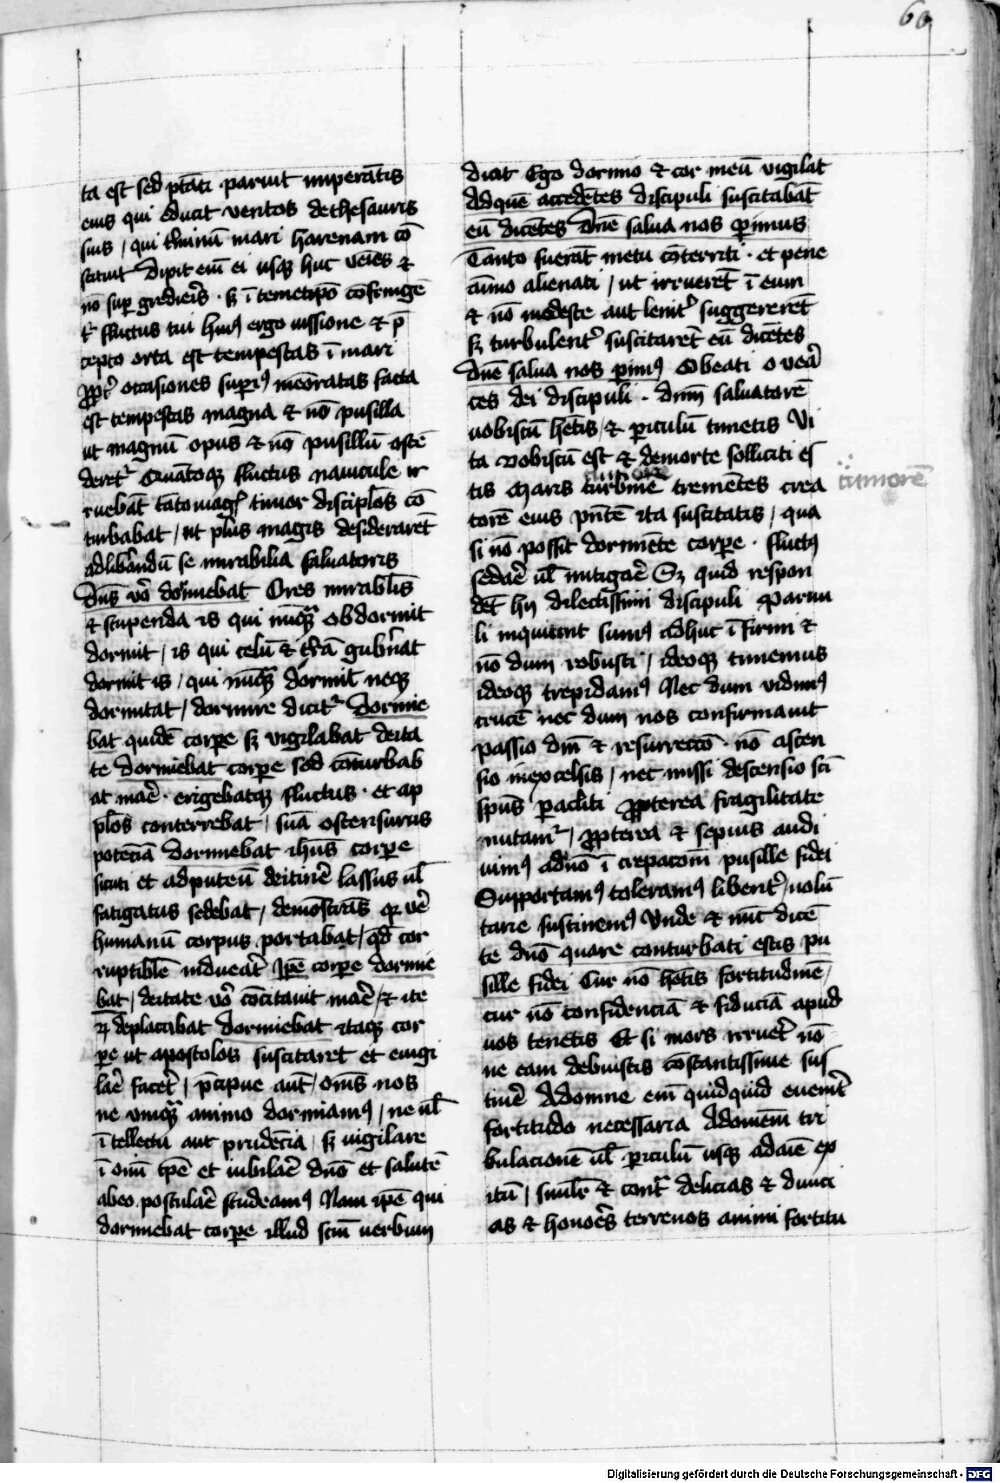 60
ta est sed ptāti paruit imperātis
eius qui educit ventos de thesauris
suis / qui t̄minū mari harenam cō
stituit Dixit eim̄ ei usq; huc veies &
nō sup gredieris · sȝ ī temetip̄o cōfringē
t᷑ fluctus tui huiꝰ ergo iussione & p̄
cepto orta est tempestas ī mari
ꝓpt᷑ occasiones supiꝰ meōratas facta
est tempestas magna & nō pusilla
ut magnū opus & nō pusillū ostē
deret᷑ Quātoq; fluctus nauicule ir
ruebāt tāto magꝭ timor discipl̄os cō
turbabat / ut pl̄us magis desiderarēt
ad libandū se mirabilia saluatoris
Dn̄s vō dormiebat O res mirabl̄is
& stupenda is qui nūq̄ obdormit
dormit / is qui celū & t̄rā gub̄nat
dormit is / qui nūq̄ dormit neq;
dormitat / dormire dicit᷑ Dormie
bat quidē corꝑe sȝ vigilabat deita
te dormiebat corꝑe sed cōturbab
at maē · erigebatq; fluctus · et ap
pl̄os conterrebat / suā ostensurus
potēciā dormiebat ih̄us corꝑe
sicuti et ad puteū de itinē lassus ul̄
fatigatus sedebat / demōstrās qꝫ vē
humanū corpus portabat / qd̄ cor
ruptibl̄e induēat Ip̄e corꝑe dormie
bat / deitate vō cōcitauit maē / & ite
ꝝ deplacabat dormiebat itaq; cor
ꝑe ut apostolos suscitaret et euigi
laē facet᷑ / p̄cipue aut̄ / om̄s nos
ne unq̄ animo dormiamꝰ / ne ul̄
ītellectu aut prudēcia / sȝ uigilare
ī om̄i tp̄e et iubilaē dn̄o et salutē
ab eo postulaē studeamꝰ Nam ip̄e qui
dormiebat corꝑe illud scm̄ verbum
dicit Ego dormio & cor meū vigilat
Ad quē accedētes discipuli suscitabāt
eū dicētes Dn̄e salua nos ꝑimus
Tanto fuerāt metu cōterriti · et pene
aīmo alienati / ut irruerēt ī eum
& nō modeste aut lenit᷑ suggererēt
sȝ turbulent᷑ suscitarēt eū dicētes
Dn̄e salua nos ꝑimꝰ O beati o vea
ces dei discipuli · dnm̄ saluatorē
uobiscū hētis / & ꝑiculū timetis Vi
ta vobiscū est & de morte solliciti es
tis Maris turbine tremētes crea
timorē
torē eius pn̄tē ita suscitatis / qua
si nō possit dormiēte corꝑe · fluctꝰ
sedaē ul̄ mitigaē Sȝ quid respon
dēt hij dilectissimi discipuli Paruu
li inquiunt sumꝰ adhuc ī firmi &
nō dum robusti / ideoq; timemus
ideoq; trepidamꝰ Nec dum vidimꝰ
crucē nec dum nos confirmauit
passio dn̄i & resurrectō · nō ascen
sio in excelsis / nec missi descensio sc̄i
spūs ꝑacliti ꝓpterea fragilitate
nutam᷑ / ꝓpterea & sepius audi
uimꝰ a dn̄o ī crepacōm̄ pusille fidei
Supportamꝰ toleramꝰ libent᷑ / uolū
tarie sustinemꝰ Unde & nūc dicē
te dn̄o quare conturbati estis pu
sille fidei Cur nō hētis fortitudinē /
cur nō confidenciā & fiduciā apud
uos tenetis Et si mors irruet᷑ nō
ne eam debuistis cōstantissime sus
tinē Ad omne eim̄ quidquid euen̄it
fortitudo necessaria Ad om̄em tri
bulacionē ul̄ ꝑiculū usq; ad aīe ex
itū / simil᷑ & cont᷑ delicias & diuici
as & honoēs terrenos animi fortitu
Digitalisierung gefördert durch die Deutsche Forschungsgemeinschaft - DFG